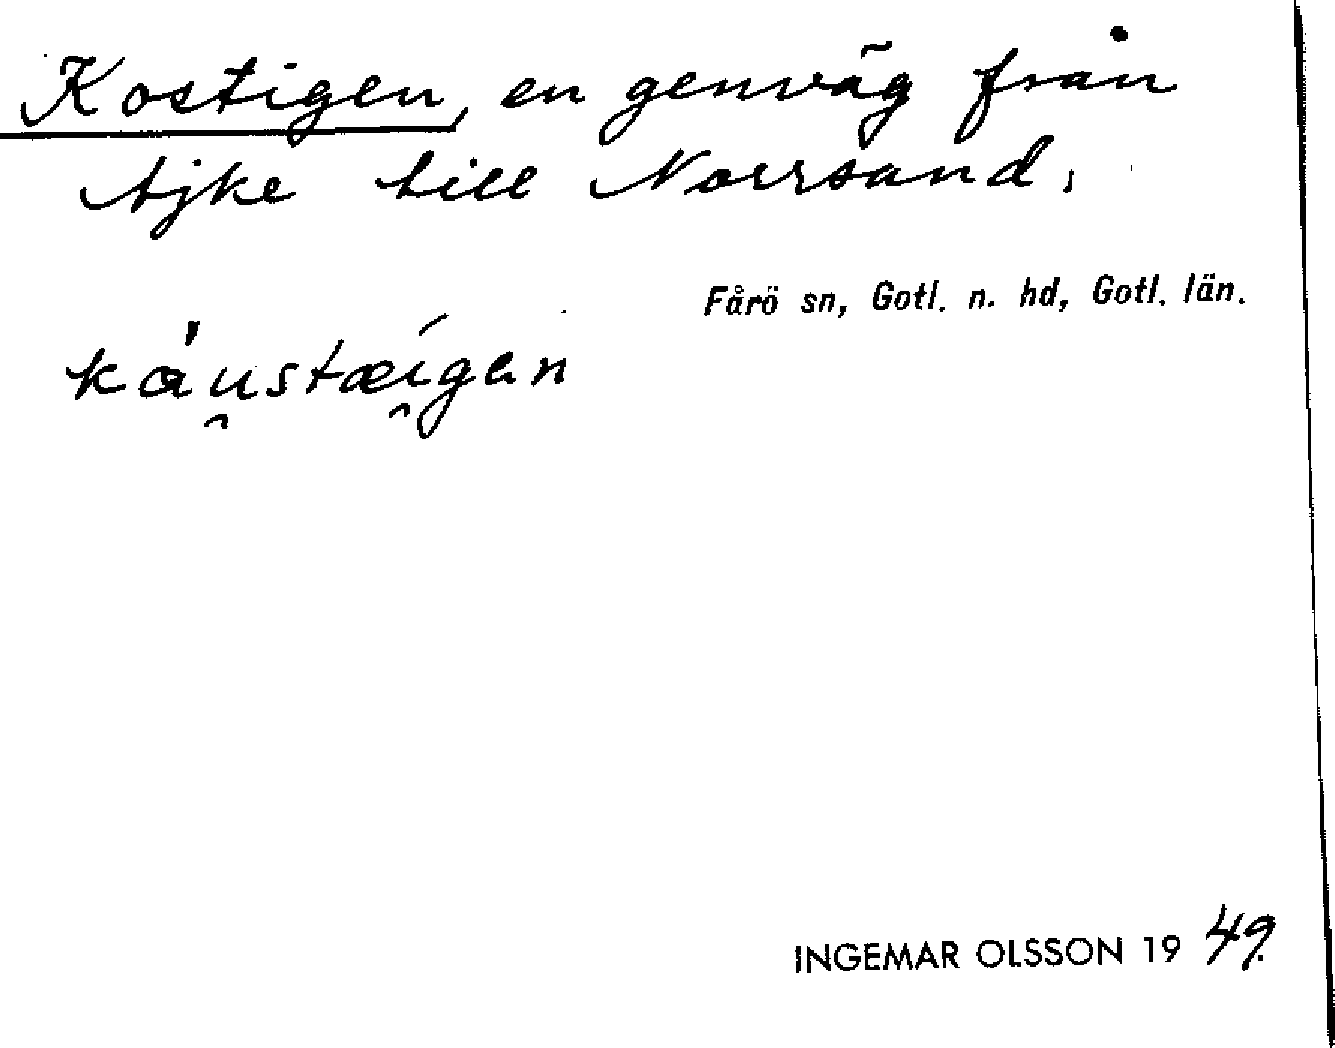 Kostigen, en genväg från
Ajke till Norrsand.
Fårö sn, Gotl. n. hd, Gotl. län.
káu̯stæi̯gen
INGEMAR OLSSON 19 49.